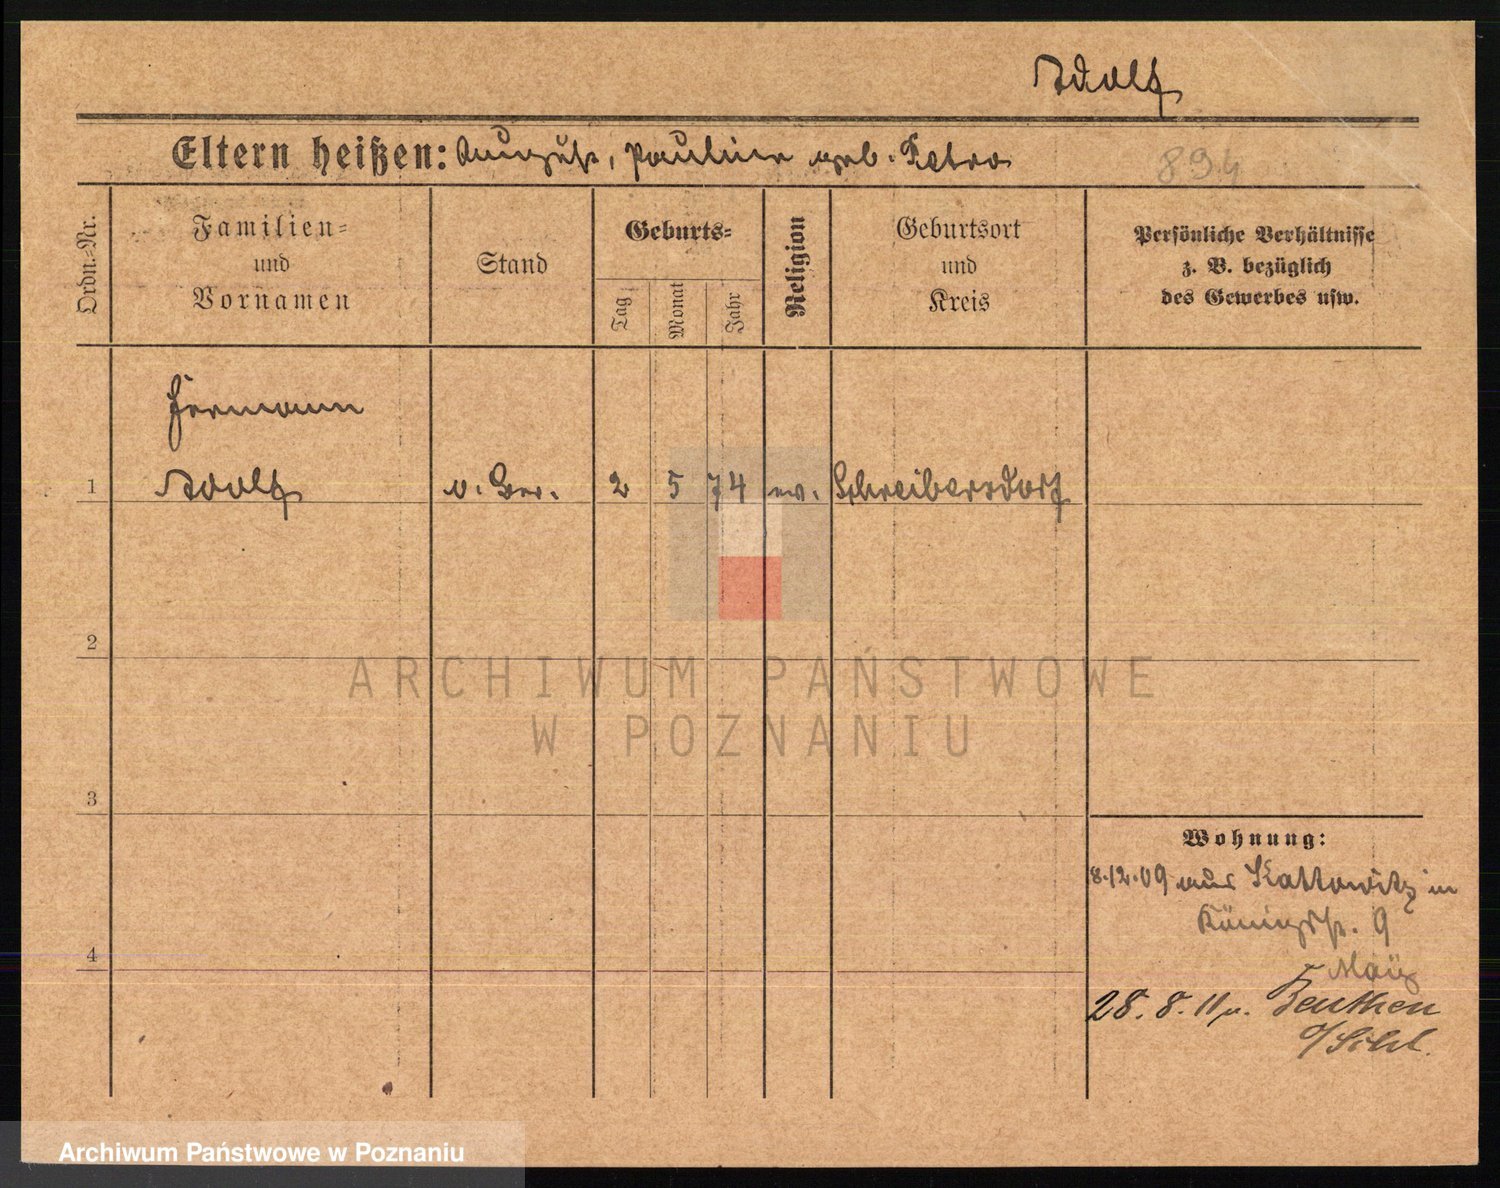 Adolf
Eltern heißen: August, Pauline geb. Petro
894
Ordn.-Nr.
Familien=
und
Vornamen
Stand
Geburts=
Tag
Monat
Jahr
Religion
Geburtsort
und
Kreis
Persönliche Verhältnisse
z. B. bezüglich
des Gewerbes usw.
Hermann
1 Adolf v. 2 5 74 ev. Schreibersdorf
2
ARCHIWUM PAŃSTWOWE
W POZNANIU
3
Wohnung:
8.12.09 aus Kattowitz in
Königstr. 9
4
28. 8. 11 n. Beuthen
o/Schl.
Archiwum Państwowe w Poznaniu